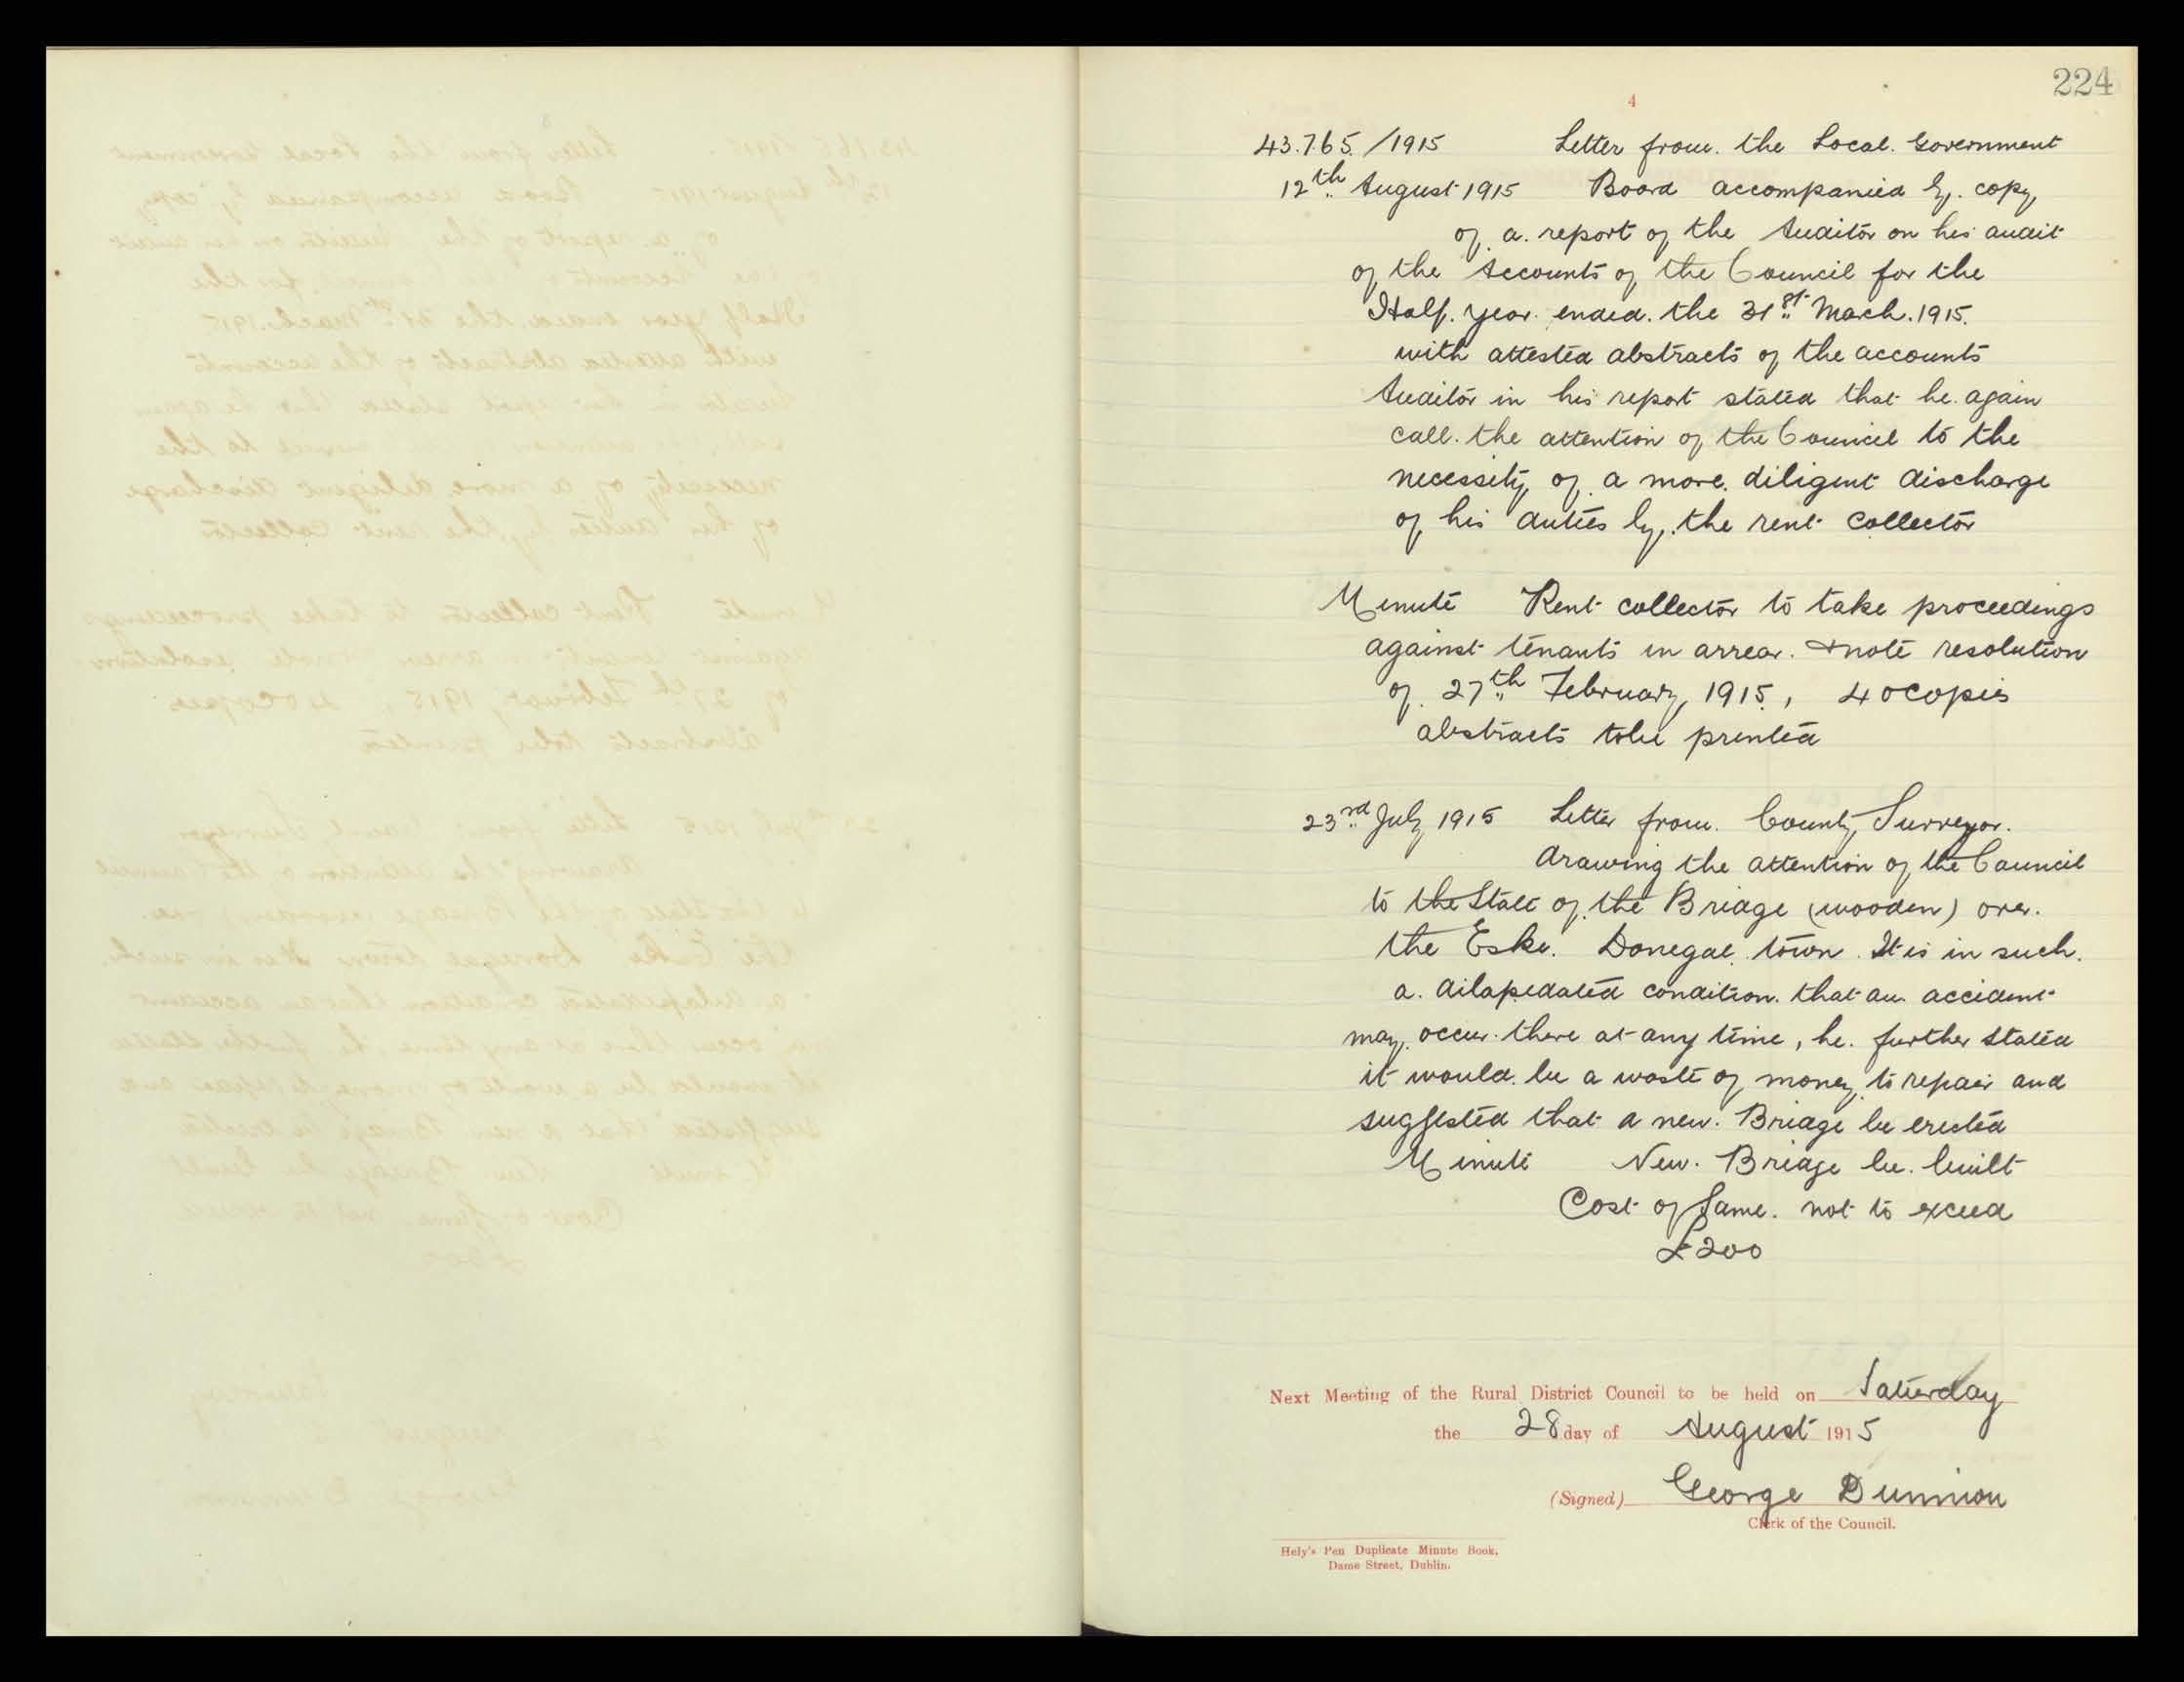 224
4
43.765./1915 Letter from. the Local. Government
12th August 1915 Board accompanied by. copy
of a. report of the Auditor on his audit
of the Accounts of the Council for the
Half. Year. ended. the 31st March. 1915.
with attested abstracts of the accounts
Auditor in his report stated that he. again
call. the attention of the Council to the
necessity of. a more. diligent discharge
of his duties by. the rent collector
Minute Rent collector to take proceedings
against tenants in arrear. & note resolution
of. 27th February, 1915, 40 copies
abstracts to be printed
23rd July 1915 Letter from. County Surveyor.
drawing the attention of the Council
to the State of. the Bridge (wooden) over.
the Eske. Donegal. town. It is in such.
a. dilapedated condition. that an. accident
may. occur. there at any time, he. further stated
it would. be a waste of money. to repair and
suggested that a new. Bridge be erected
Minute New. Bridge be. built
Cost of Same. not to exceed
£200
Next Meeting of the Rural District Council to be held on Saturday
the 28 day of August 1915
(Signed) George Dunnion
Clerk of the Council.
Hely's Pen Duplicate Minute Book,
Dame Street, Dublin.